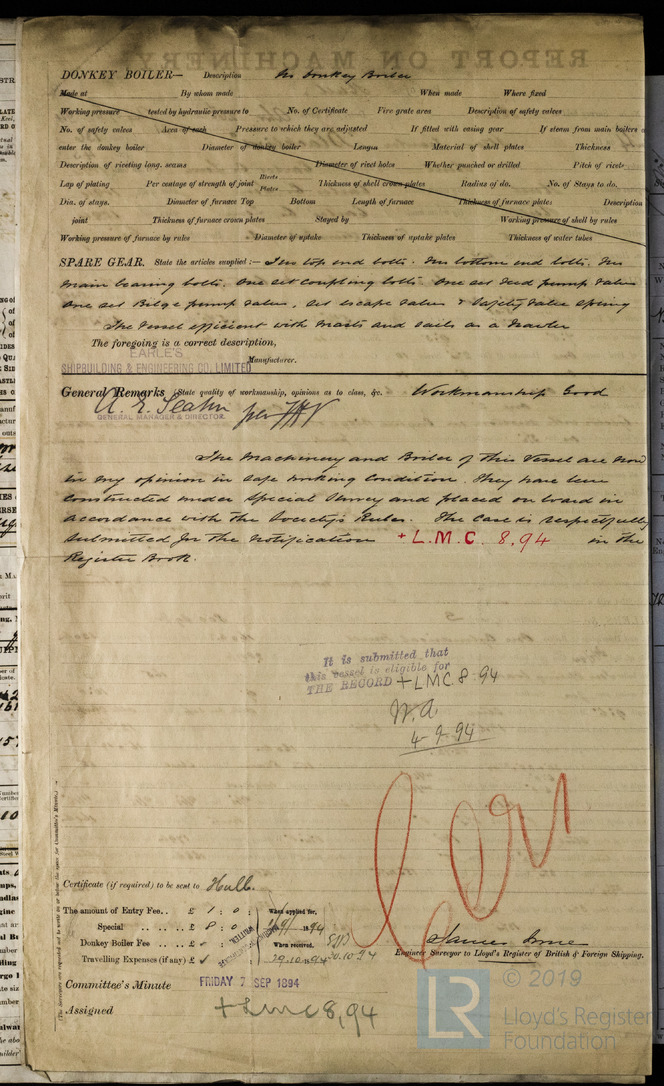 DONKEY BOILER— Description No Donkey Boiler
Made at By whom made When made Where fixed
Working pressure tested by hydraulic pressure to No. of Certificate Fire grate area Description of safety valves
No. of safety valves Area of each Pressure to which they are adjusted If fitted with easing gear If steam from main boilers can
enter the donkey boiler Diameter of donkey boiler Length Material of shell plates Thickness
Description of riveting long. seams Diameter of rivet holes Whether punched or drilled Pitch of rivets
Lap of plating Per centage of strength of joint Rivets Plates Thickness of shell crown plates Radius of do. No. of Stays to do.
Dia. of stays. Diameter of furnace Top Bottom Length of furnace Thickness of furnace plates Description
joint Thickness of furnace crown plates Stayed by Working pressure of shell by rules
Working pressure of furnace by rules Diameter of uptake Thickness of uptake plates Thickness of water tubes
SPARE GEAR. State the articles supplied:— Two top end bolts. Two bottom end bolts. Two
main bearing bolts. One set coupling bolts. One set Feed pump valves
One set Bilge pump valves, Set escape valves & Safety valve spring
The Vessel efficient with masts and sails as a Trawler
The foregoing is a correct description,
EARLE'S
SHIPBUILDING & ENGINEERING CO. LIMITED Manufacturer.
General Remarks (State quality of workmanship, opinions as to class, &c. Workmanship Good
A. E. Seaton per
GENERAL MANAGER & DIRECTOR.
The Machinery and Boiler of this Vessel are now
in my opinion in safe working condition. They have been
constructed under Special Survey and placed on board in
accordance with the Society's Rules. The case is respectfully
submitted for the notification + L.M.C. 8.94 in the
Register Book.
It is submitted that
this vessel is eligible for
THE RECORD + LMC 8.94
W.A.
4-9-94
Certificate (if required) to be sent to Hull.
The amount of Entry Fee.. £ 1 : 0 : When applied for,
Special .. £ 8 : 0 : 1894
Donkey Boiler Fee .. £ When received.
Travelling Expenses (if any) £ 29.10.94 30.10.94
Engineer Surveyor to Lloyd's Register of British & Foreign Shipping.
Committee's Minute FRIDAY 7 SEP 1894
Assigned + LMC 8,94
© 2019
LR Lloyd's Register
Foundation